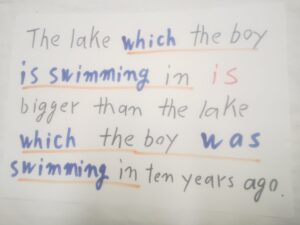 The lake which the boy
is swimming in is
bigger than the lake
which the boy was
swimming in ten years ago.